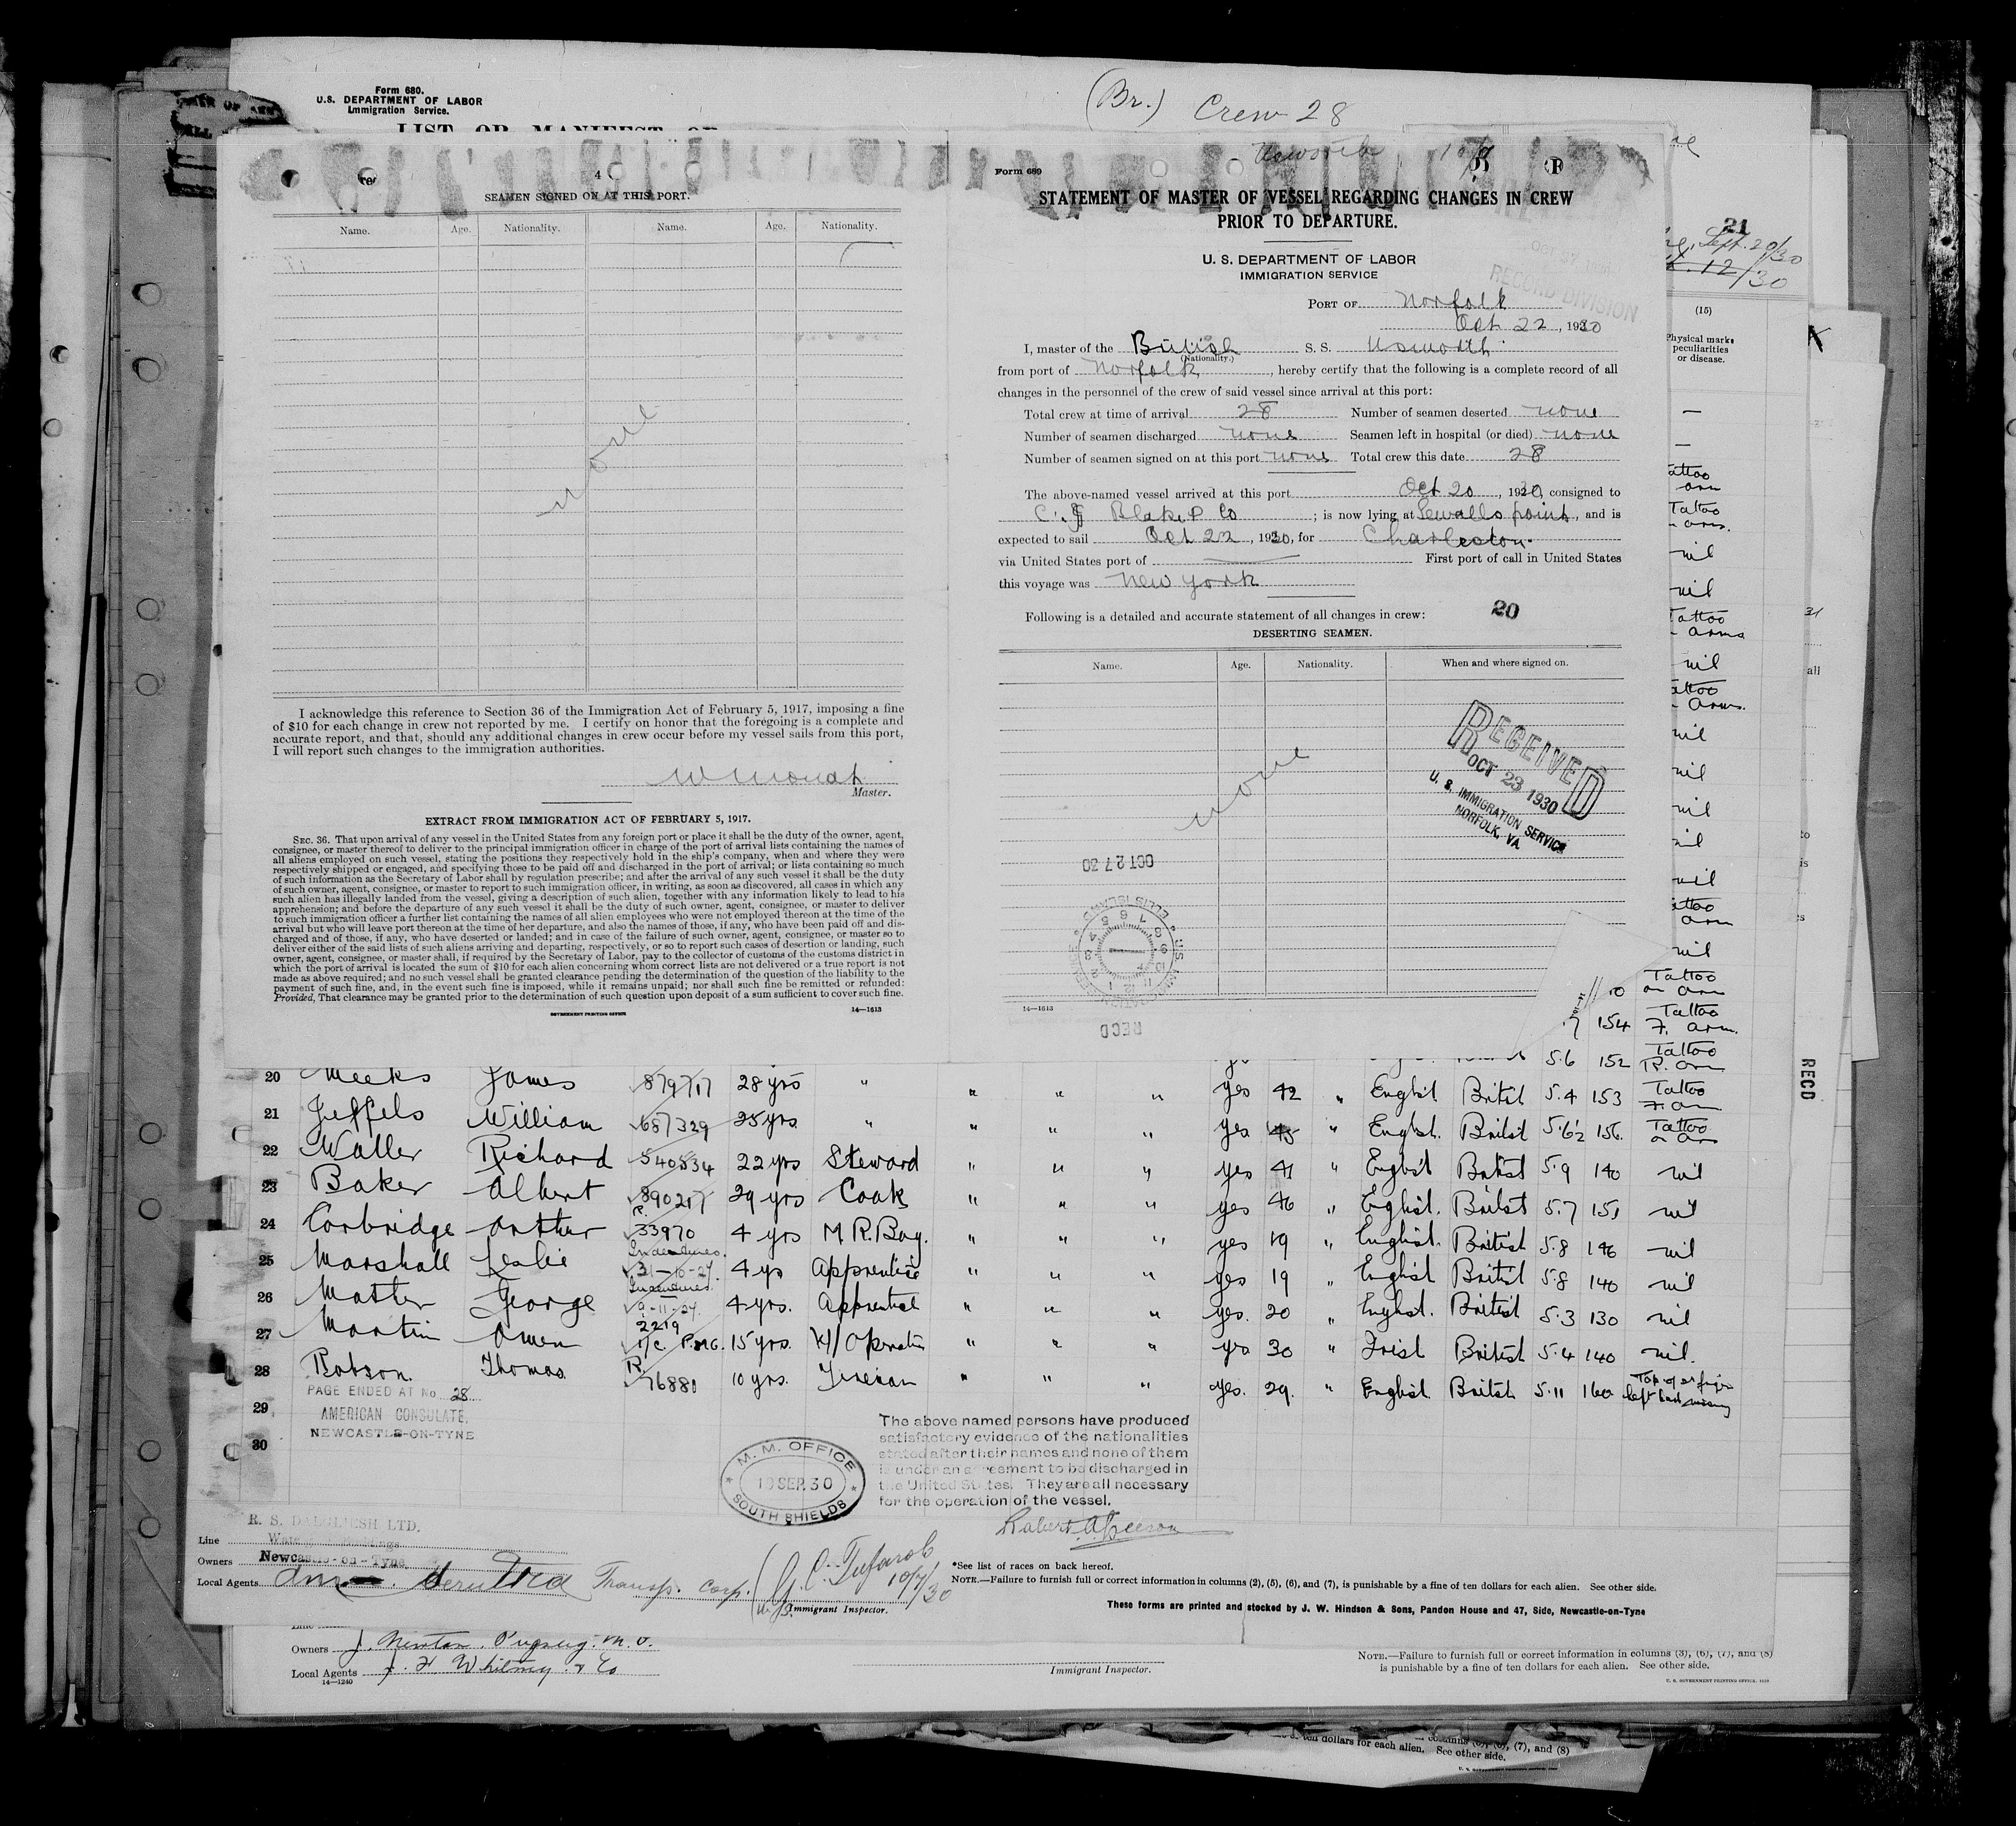 Form 680.
U. S. DEPARTMENT OF LABOR
Immigration Service.
(Br.) Crew 28
4
SEAMEN SIGNED ON AT THIS PORT.
Name. Age. Nationality. Name. Age. Nationality.
none
I acknowledge this reference to Section 36 of the Immigration Act of February 5, 1917, imposing a fine
of $10 for each change in crew not reported by me. I certify on honor that the foregoing is a complete and
accurate report, and that, should any additional changes in crew occur before my vessel sails from this port,
I will report such changes to the immigration authorities.
Master.
EXTRACT FROM IMMIGRATION ACT OF FEBRUARY 5, 1917.
SEC. 36. That upon arrival of any vessel in the United States from any foreign port or place it shall be the duty of the owner, agent,
consignee, or master thereof to deliver to the principal immigration officer in charge of the port of arrival lists containing the names of
all aliens employed on such vessel, stating the positions they respectively hold in the ship's company, when and where they were
respectively shipped or engaged, and specifying those to be paid off and discharged in the port of arrival; or lists containing so much
of such information as the Secretary of Labor shall by regulation prescribe; and after the arrival of any such vessel it shall be the duty
of such owner, agent, consignee, or master to report to such immigration officer, in writing, as soon as discovered, all cases in which any
such alien has illegally landed from the vessel, giving a description of such alien, together with any information likely to lead to his
apprehension; and before the departure of any such vessel it shall be the duty of such owner, agent, consignee, or master to deliver
to such immigration officer a further list containing the names of all alien employees who were not employed thereon at the time of the
arrival but who will leave port thereon at the time of her departure, and also the names of those, if any, who have been paid off and dis-
charged and of those, if any, who have deserted or landed; and in case of the failure of such owner, agent, consignee, or master so to
deliver either of the said lists of such aliens arriving and departing, respectively, or so to report such cases of desertion or landing, such
owner, agent, consignee, or master shall, if required by the Secretary of Labor, pay to the collector of customs of the customs district in
which the port of arrival is located the sum of $10 for each alien concerning whom correct lists are not delivered or a true report is not
made as above required; and no such vessel shall be granted clearance pending the determination of the question of the liability to the
payment of such fine, and, in the event such fine is imposed, while it remains unpaid; nor shall such fine be remitted or refunded:
Provided, That clearance may be granted prior to the determination of such question upon deposit of a sum sufficient to cover such fine.
GOVERNMENT PRINTING OFFICE 14—1613
Form 689
STATEMENT OF MASTER OF VESSEL REGARDING CHANGES IN CREW
PRIOR TO DEPARTURE.
U. S. DEPARTMENT OF LABOR
IMMIGRATION SERVICE
RECORD DIVISION
PORT OF Norfolk
Oct 22, 1930
I, master of the British S. S. Usworth
(Nationality.)
from port of Norfolk, hereby certify that the following is a complete record of all
changes in the personnel of the crew of said vessel since arrival at this port:
Total crew at time of arrival 28 Number of seamen deserted none
Number of seamen discharged none Seamen left in hospital (or died) none
Number of seamen signed on at this port none Total crew this date 28
The above-named vessel arrived at this port Oct 20, 1930, consigned to
Blake & Co; is now lying at Sewalls point, and is
expected to sail Oct 22, 1930, for Charleston.
via United States port of First port of call in United States
this voyage was New York
Following is a detailed and accurate statement of all changes in crew: 20
DESERTING SEAMEN.
Name. Age. Nationality. When and where signed on.
none
RECEIVED
OCT 23 1930
U. S. IMMIGRATION SERVICE
NORFOLK, VA
OCT 27 30
ELLIS ISLAND
RECD
14—1613
21
Sept. 20/30
12/30
(15)
Physical marks
peculiarities
or disease.
nil
nil
nil
nil
nil
nil
nil
nil
nil
Tattoo
on arm
154 Tattoo
F. arm.
5.6 152 Tattoo
R. arm
RECD
20 Meeks James 879717 28 yrs " " " " yes 42 " English British 5.4 153 Tattoo F. arm
21 Jeffels William 687329 25 yrs " " " " yes 45 " English British 5.6½ 156 Tattoo on arm
22 Waller Richard 540534 22 yrs Steward " " " yes 41 " English British 5.9 140 nil
23 Baker Albert 890217 29 yrs Cook " " " yes 46 " English British 5.7 151 nil
24 Corbridge Arthur R. 33970 4 yrs M. R. Boy. " " " yes 19 " English British 5.8 146 nil
25 Marshall Leslie Indentures 31-10-27 4 yrs Apprentice " " " yes 19 " English British 5.8 140 nil
26 Matter George Indentures 9-11-27 4 yrs. Apprentice " " " yes. 20 " English British 5.3 130 nil
27 Martin Owen 2219 1/C P.M.G. 15 yrs. W/Operator " " " yes 30 " Irish British 5.4 140 nil.
28 Robson Thomas R. 76880 10 yrs. Fireman " " " yes. 29. " English British 5.11 160 Top of finger left hand missing
PAGE ENDED AT No 28
29 AMERICAN CONSULATE,
NEWCASTLE-ON-TYNE
30
M. M. OFFICE
19 SEP. 30
SOUTH SHIELDS
The above named persons have produced
satisfactory evidence of the nationalities
stated after their names and none of them
is under an agreement to be discharged in
the United States. They are all necessary
for the operation of the vessel.
R. S. DALGLIESH LTD.
Line
Owners Newcastle-on-Tyne.
Local Agents Transp. Corp.
10/7/30
Immigrant Inspector.
*See list of races on back hereof.
NOTE.—Failure to furnish full or correct information in columns (2), (5), (6), and (7), is punishable by a fine of ten dollars for each alien. See other side.
These forms are printed and stocked by J. W. Hindson & Sons, Pandon House and 47, Side, Newcastle-on-Tyne
Owners
Local Agents J. H. Whitney & Co
14—1240
Immigrant Inspector.
NOTE.—Failure to furnish full or correct information in columns (3), (6), (7), and (8)
is punishable by a fine of ten dollars for each alien. See other side.
U. S. GOVERNMENT PRINTING OFFICE
ten dollars for each alien. See other side.
(7), and (8)